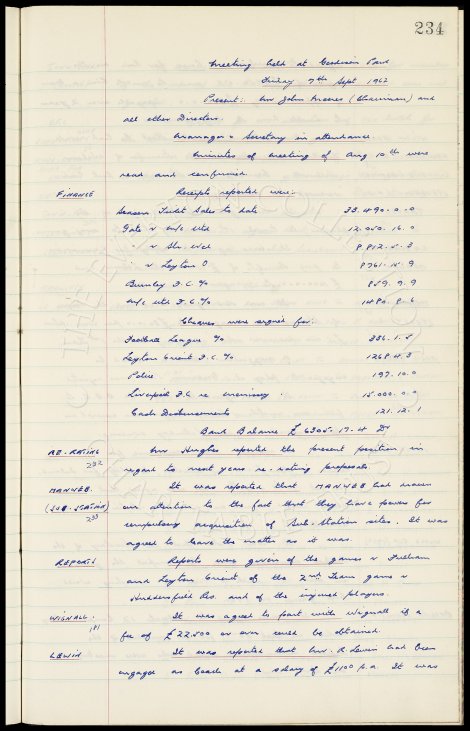 234
Meeting held at Goodison Park
Friday 7th Sept 1962
Present: Mr John Moores (Chairman) and
all other Directors.
Manager & Secretary in attendance.
Minutes of meeting of Aug 10th were
read and confirmed.
FINANCE Receipts reported were:
Season Ticket Sales to date 33.490.0.0
Gate v M/c Utd 12.050.16.0
" v Shr. Wed 8.812.5.3
" v Leyton O 8761.15.9
Burnley F.C. % 859.9.9
M/c Utd F.C. % 1484.8.6
Cheques were signed for:
Football League % 336.1.5
Leyton Orient F.C. % 1268.4.3
Police 197.10.0
Liverpool F.C. re 15.000.0.0
Cash Disbursements 121.12.1
Bank Balance £6305.17.4 Dr
RE-RATING Mr Hughes reported the present position in
232 regard to next years re-rating proposals.
MANWEB. It was reported that MANWEB had drawn
(SUB. STATION) our attention to the fact that they have powers for
233 compulsory acquisition of Sub. Station sites. It was
agreed to leave the matter as it was.
REPORTS Reports were given of the games v Fulham
and Leyton Orient of the 2nd Team game v
Huddersfield Res. and of the injured players.
WIGNALL. It was agreed to part with Wignall if a
181 fee of £22.500 or over could be obtained.
LEWIN It was reported that Mr. R. Lewin had been
engaged as Coach at a salary of £1100 p.a. It was